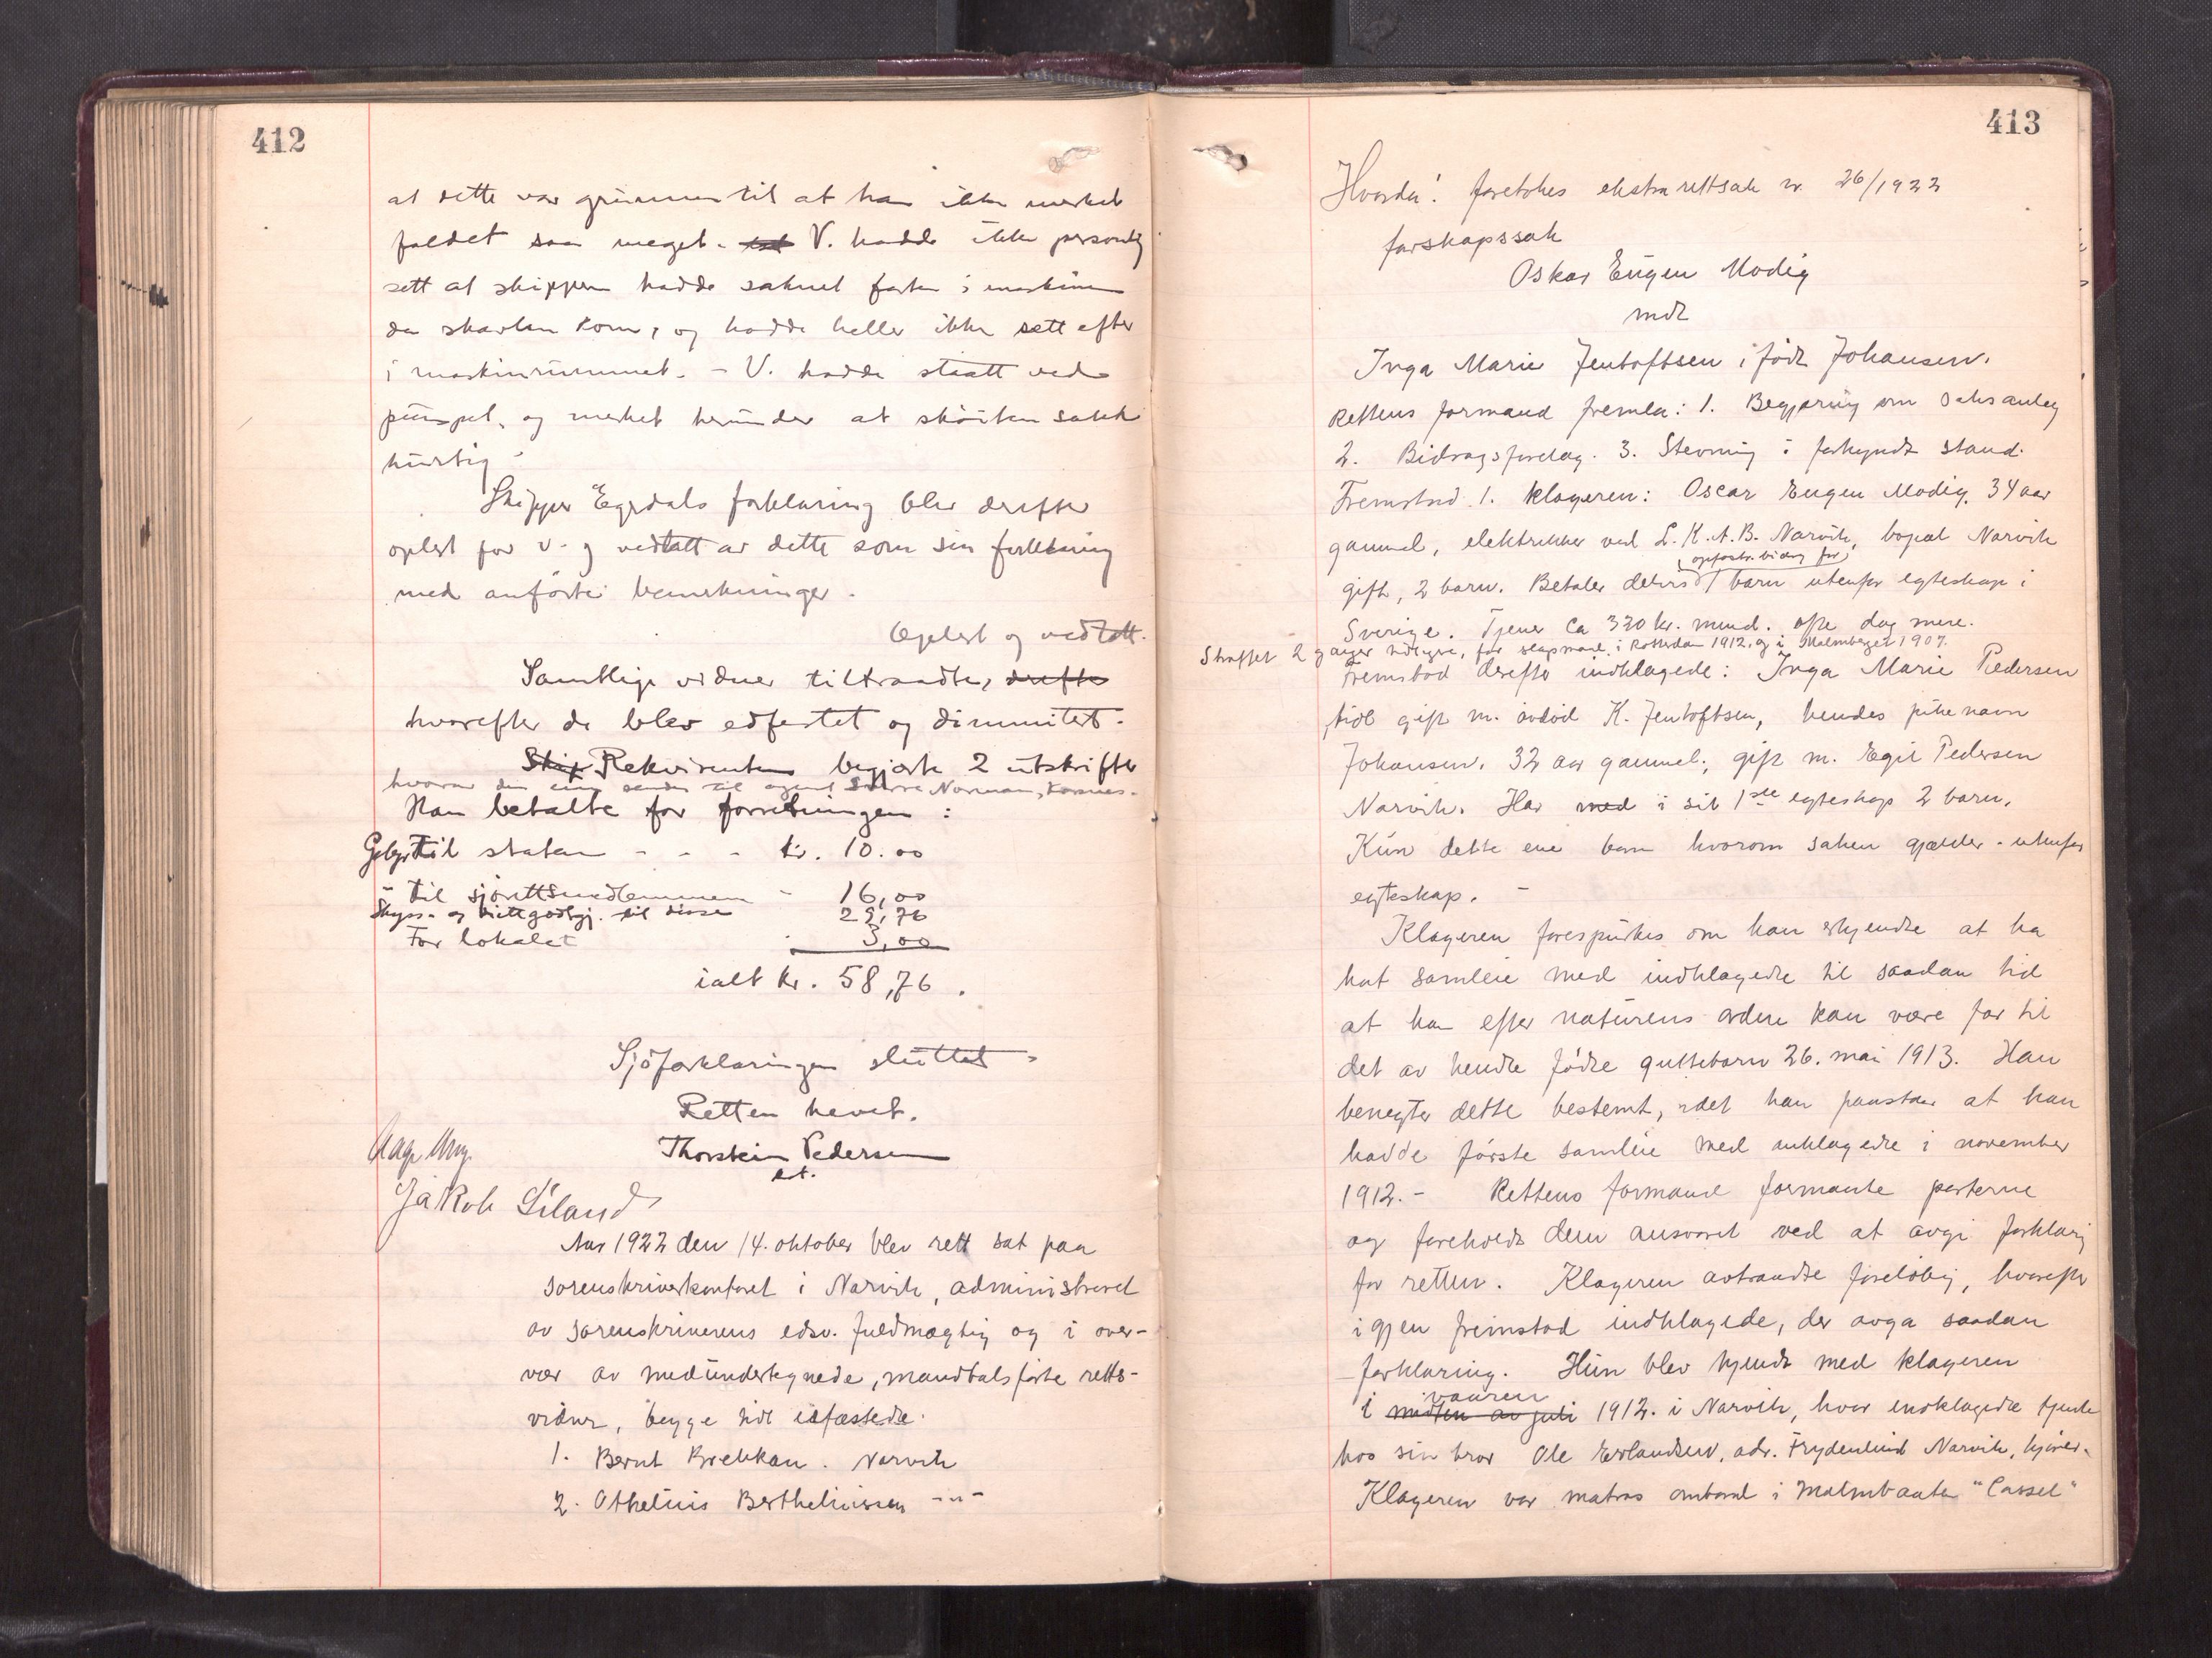 412
at dette var grunnen til at han ikke merket
faldet saa meget. V. hadde ikke personlig
sett at skipperen hadde saknet farten i maskinen
da skarken kom, og hadde heller ikke sett efter
i maskinrummet. - V. hadde staatt ved
pumpet, og merket herunder at skøiten sakk
hurtig.
Skipper Egedals forklaring blev derefter
oplest for V. og vedtatt av dette som sin forklaring
med anførte bemerkninger.
Oplest og vedtatt.
Samtlige vidner tiltraadte, derefter
hvorefter de blev edfestet og dimmitert.
Skip Rekvirenten begjærte 2 utskrifter
hvorav den ene sendes til agent Sverre Norman,
Han betalte for forretningen :
Gebyr til staten - - - kr. 10.00
" til sjørettsmedlemmene - 16,00
Skyss- og diettgodtgj. til disse 29,76
For lokalet 3,00
ialt kr. 58,76.
Sjøforklaringen sluttet.
Retten hevet.
Thorstein Pedersen
Jakob Siland
Aar 1922 den 14. oktober blev rett sat paa
sorenskriverkontoret i Narvik, administreret
av sorenskriverens edsv. fuldmægtig og i over-
vær av medundertegnede, mandtalsførte retts-
vidner, begge tidl edfæstede.
1. Bernt Brekkan. Narvik
2. Othelius Berthelinssen -"-
413
Hvorda! foretokes ekstrarettsak nr. 26/1922
farskapssak
Oskar Eugen Modig
mot
Inga Marie Jentoftsen, født Johansen.
Rettens formand fremla: 1. Begjæring om saksanlæg
2. Bidragsforelæg. 3. Stevning i forkyndt stand.
Fremstod 1. klageren: Oscar Eugen Modig, 34 aar
gammel, elektriker ved L.K.A.B. Narvik, bopæl Narvik
opfostr. bidrag for
gift, 2 barn. Betaler delvis 1 barn utenfor egteskap i
Sverige. Tjener ca 320 kr. mnd. ofte dog mere.
Straffet 2 ganger tidligere, for slagsmaal, i Rotterdam 1912, og i Malmberget 1907.
Fremstod derefter indklagede: Inga Marie Pedersen
tidl gift m. avdød K. Jentoftsen, hendes pikenavn
Johansen. 32 aar gammel, gift m. Egil Pedersen
Narvik. Har med i sit 1ste egteskap 2 barn.
Kun dette ene barn hvorom saken gjælder - utenfor
egteskap. -
Klageren forespurtes om han erkjendte at ha
hat samleie med indklagede til saadan tid
at han efter naturens orden kan være far til
det av hende fødte guttebarn 26. mai 1913. Han
benegter dette bestemt, idet han paastaar at han
hadde første samleie med indklagede i november
1912. - Rettens formand formante parterne
og foreholdt dem ansvaret ved at avgi forklaring
for retten. Klageren avtraadte foreløbig, hvorefter
igjen fremstod indklagede, der avga saadan
forklaring. Hun blev kjendt med klageren
vaaren
i midten av juli 1912. i Narvik, hvor indklagede tjente
hos sin bror Ole Erlandsen, adr. Frydenlund Narvik,
Klageren var matros ombord i Malmbaaten "Cassel"